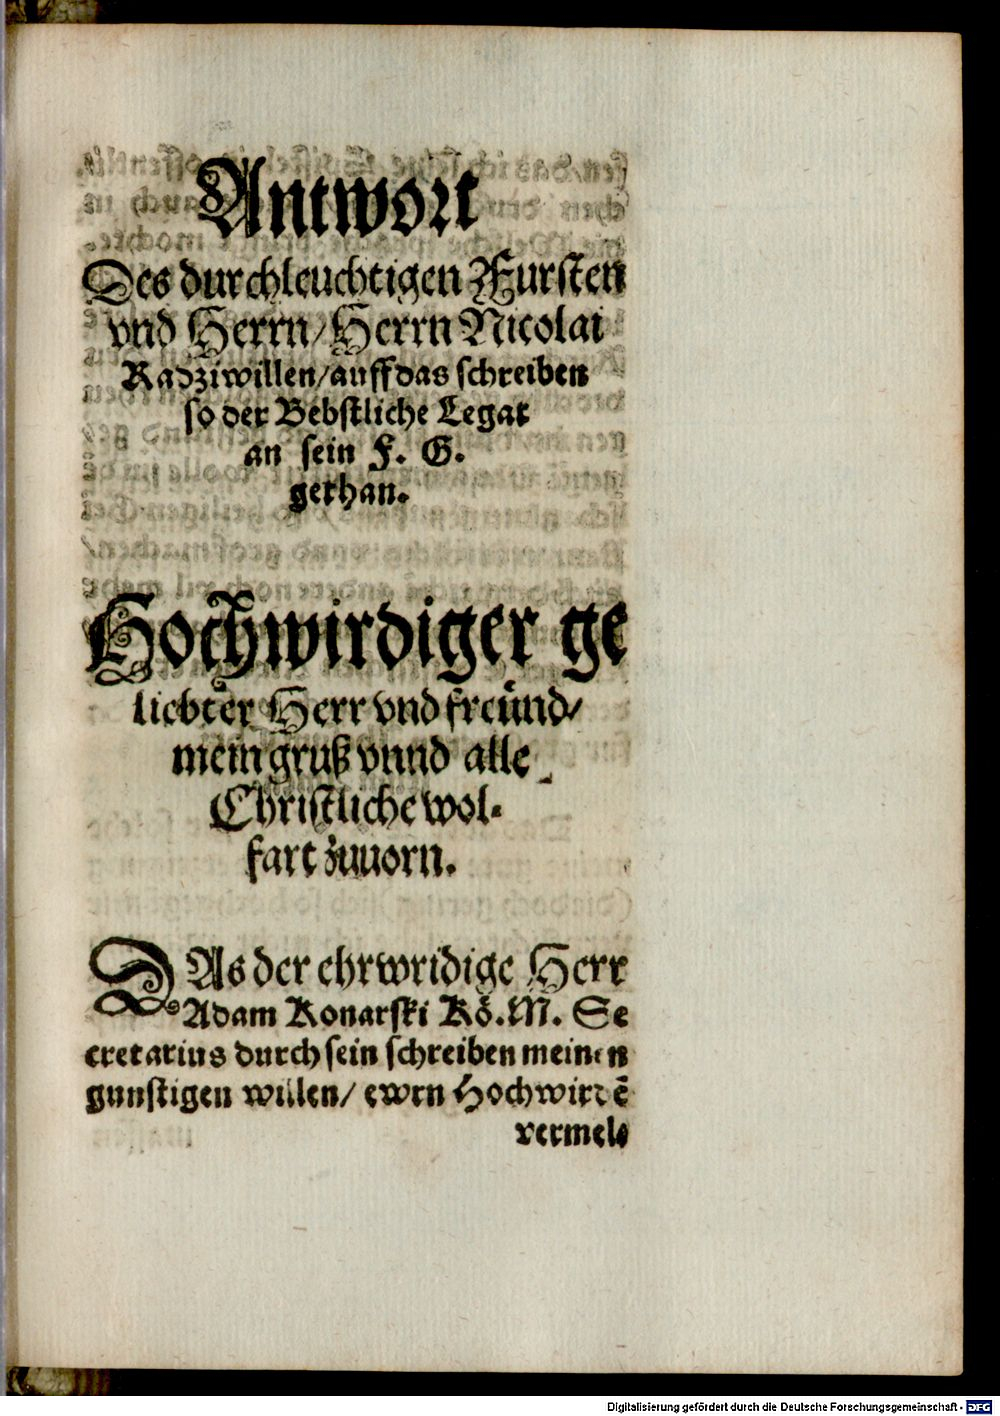 Antwort
Des durchleuchtigen Fursten
vnd Herrn/ Herrn Nicolai
Radziwillen/ auff das schreiben
so der Bebstliche Legat
an sein F. G.
gethan.
Hochwirdiger ge
liebter Herr vnd freund/
mein gruß vnnd alle
Christliche wol-
fart zuuorn.
DAs der ehrwridige Herr
Adam Konarski Kö. M. Se
cretarius durch sein schreiben meinen
gunstigen willen/ ewrn Hochwirdē
vermel-
Digitalisierung gefördert durch die Deutsche Forschungsgemeinschaft - DFG